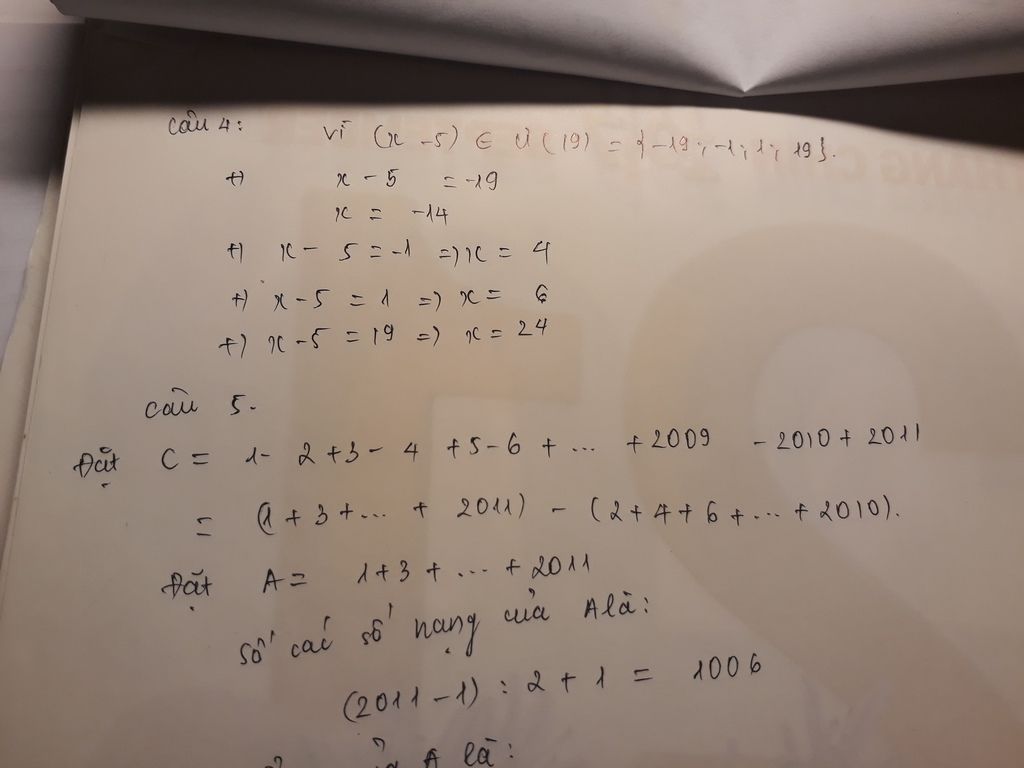 Câu 4: Vì (x - 5) ∈ Ư(19) = {-19; -1; 1; 19}.
+) x - 5 = -19
x = -14
+) x - 5 = -1 => x = 4
+) x - 5 = 1 => x = 6
+) x - 5 = 19 => x = 24
Câu 5.
Đặt C = 1 - 2 + 3 - 4 + 5 - 6 + ... + 2009 - 2010 + 2011
= (1 + 3 + ... + 2011) - (2 + 4 + 6 + ... + 2010).
Đặt A = 1 + 3 + ... + 2011
Số các số hạng của A là:
(2011 - 1) : 2 + 1 = 1006
A là: